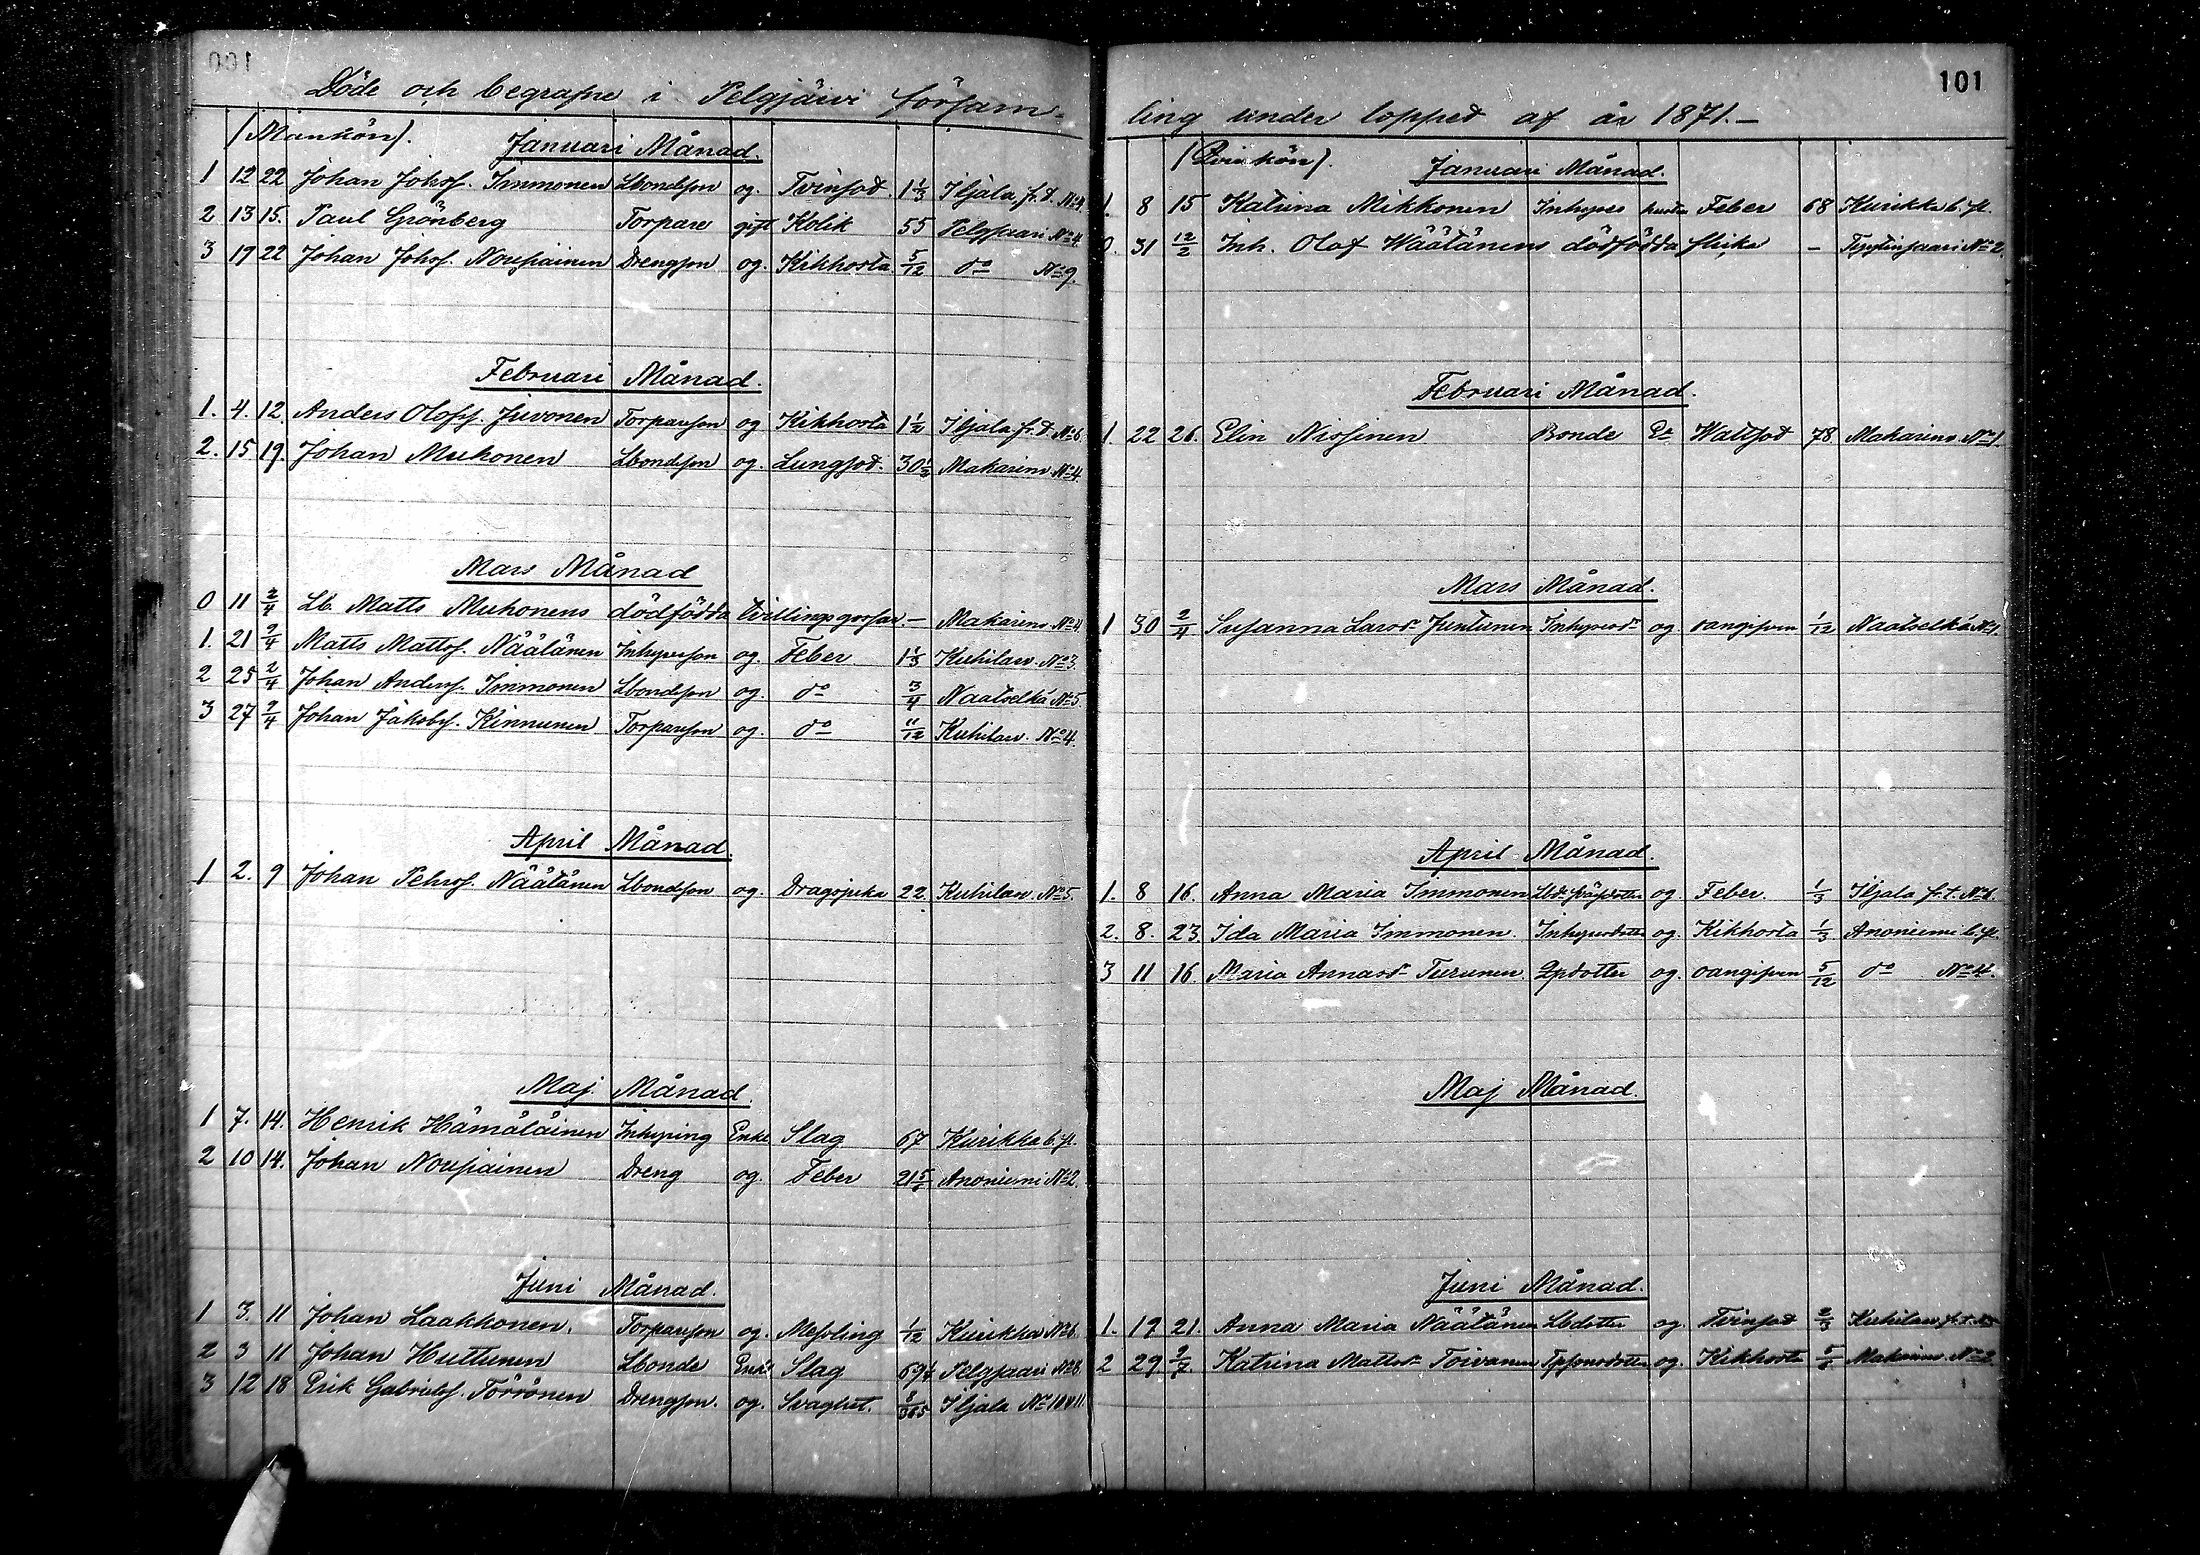 Döde och begrafne i Pelgjärvi försam-
(Mankön). Januari Månad.
1 12 22 Johan Johsf. Immonen Lbondeson og. Tvinsod. 1 1/3 Iljala fr.d. No 4.
2 13 15. Paul Grönberg Torpare gift Kolik 55 Pelgjaari No 4.
3 19 22 Johan Johsf. Nousiainen Drengson og. Kikhosta 5/12 do No 9.
Februari Månad.
1. 4. 12. Anders Olofss. Juvonen Torpareson og Kikhosta 1 1/2 Iljala fr.d. No 6.
2. 15 19. Johan Muhonen Lbondeson og. Lungsod. 30 1/2 Makarins. No 4.
Mars Månad
0 11 2/4 Lb. Matts Muhonens dödfödda tvillings gossar. – Makarins No 4.
1. 21 2/4 Matts Mattsf. Näätänen Inhyseson og. Feber 1 1/3 Kuhilaw. No 3.
2 25 2/4 Johan Andersf. Immonen Lbondeson og. do 3/4 Naatselkä No 5.
3 27 2/4 Johan Jakobsf. Kinnunen Torpareson og. do 11/12 Kuhilaw. No 4.
April Månad.
1 2. 9 Johan Pehrsf. Näätänen Lbondeson og. Dragsjuka 22. Kuhilaw. No 5.
Maj. Månad.
1 7. 14. Henrik Hämäläinen Inhysing Enkl Slag 67 Kurikka b.pl.
2 10 14. Johan Nousiainen Dreng og. Feber 21 5/6 Anoniemi No 2.
Juni Månad.
1 3. 11 Johan Laakkonen. Torpareson og. Messling 1/12 Kurikka No 6.
2 3 11 Johan Huttunen Lbonde Enkl Slag 69 1/4 Pelgjaari No 8.
3 12 18 Erik Gabrielsf. Törrönen Drengson. og. Svaghet. 8/365 Iljala No 10 & 11.
101
ling under loppet af år 1871.–
(Qvinkön). Januari Månad.
1. 8 15 Katrina Mikkonen Inhyses hustru Feber 68 Kurikka b.pl.
0. 31 12/2 Inh. Olof Wäätänens dödfödda flicka – No 2.
Februari Månad.
1. 22 26. Elin Nissinen Bonde Ea Wattsod 78 Makarins. No 1.
Mars Månad.
1 30 2/4 Susanna Larsdr Juntunen Inhysesdr og oangifven 1/12 Naatselkä No 1.
April Månad.
1. 8 16. Anna Maria Immonen og Feber. 1/3 Iljala fr.t. No 6.
2. 8. 23. Ida Maria Immonen. Inhysesdotter og. Kikhosta 1/3 Anoniemi b.pl.
3 11 16. Maria Annasdr Turunen. Qpdotter og. oangifven 5/12 do No 4.
Maj Månad.
Juni Månad.
1. 19 21. Anna Maria Näätänen Lbdotter og Tvinsod 2/3 Kuhilaw. fr.t.
2 29 2/7. Katrina Mattsdr Toivanen og. Kikhosta 5/6 Makarins. No 2.